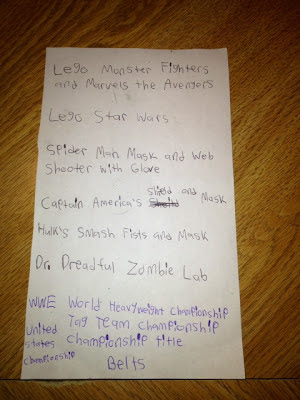 Lego Monster Fighters
and Marvels the Avengers
Lego Star Wars
Spider Man Mask and Web
Shooter with Glove
Captain America's shield and Mask
Hulk's Smash Fists and Mask
Dr. Dreadful Zombie Lab
WWE World Heavyweight Championship
Tag Team Championship
United States Championship Championship title
Belts